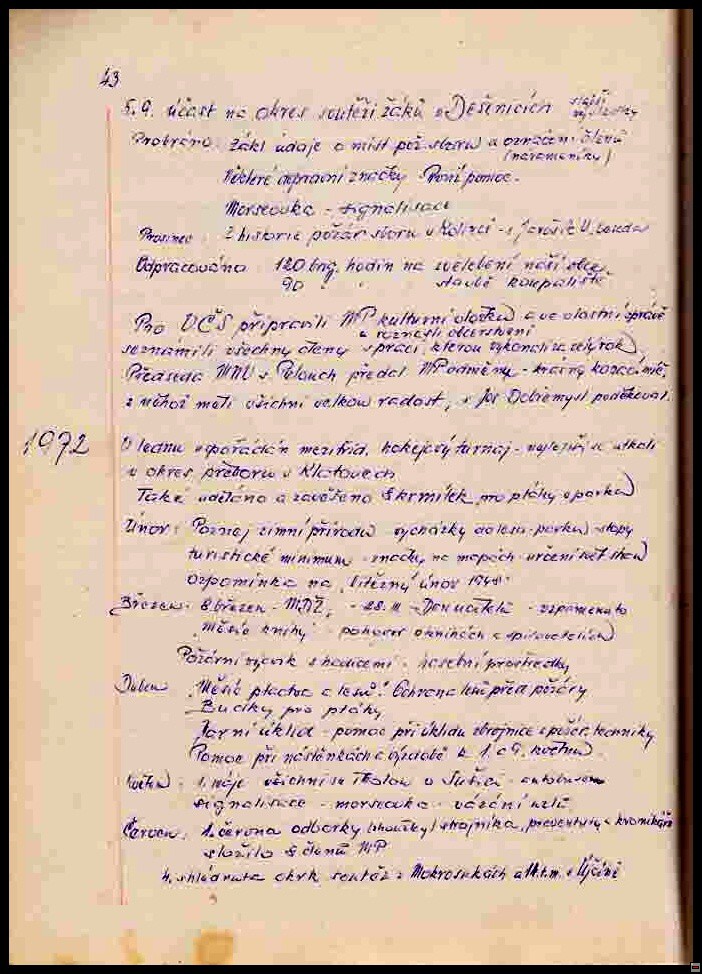 43
5.9. účast na okres soutěži žáků v Dešenicích slabší výsledky
Probráno: Zákl údaje o míst pož sboru a označení členů
(nárameníky)
Některé dopravní značky První pomoc.
Morseovka - signalisace
Prosinec: Z historie požár sboru v Kolinci - s Jarošík
Odpracováno: 120 brig. hodin na zvelebení naší obce
90 " " stavbě koupaliště
Pro VČS připravili MP kulturní vložku a ve vlastní zprávě
a roznášli občerstvení
seznámili všechny členy s prací, kterou vykonali za celý rok
Předseda MNV s Polouch předal MP odměny - krásný kopací míč,
z něhož měli všichni velkou radost, s Jos Dobřemysl poděkoval.
1972
V lednu uspořádán mezitříd. hokejový turnaj - nejlepší se utkali
v okres přeboru v Klatovech
Také uděláno a zavěšeno 8 krmítek pro ptáky v parku
Únor: Poznej zimní přírodu - vycházky do lesa - parku - stopy
turistické minimum - značky na mapách - určení svět stran
vzpomínka na "Vítězný únor 1948"
Březen: 8. březen - MDŽ, - 28. III - Den učitelů - vzpomenuto
"Měsíc knihy" - pohovor o knihách a spisovatelích
Požární výcvik s hadicemi - hasební prostředky
Duben "Měsíc ptactva a lesů". Ochrana lesů před požáry
Budky pro ptáky
Jarní úklid - pomoc při úklidu zbrojnice a požár. techniky
Pomoc při nástěnkách a výzdobě k 1. a 9. květnu.
Květen: 1. máje všichni se školou v Sušici - autobusem
signalisace - morseovka - vázání uzlů
Červen: 1. června odborky (zkoušky) strojníka, preventisty a kronikáře
složilo 8 členů MP
4. shlédnuta okrk soutěž v Mokrosukách a M.t.m. v Újčíně